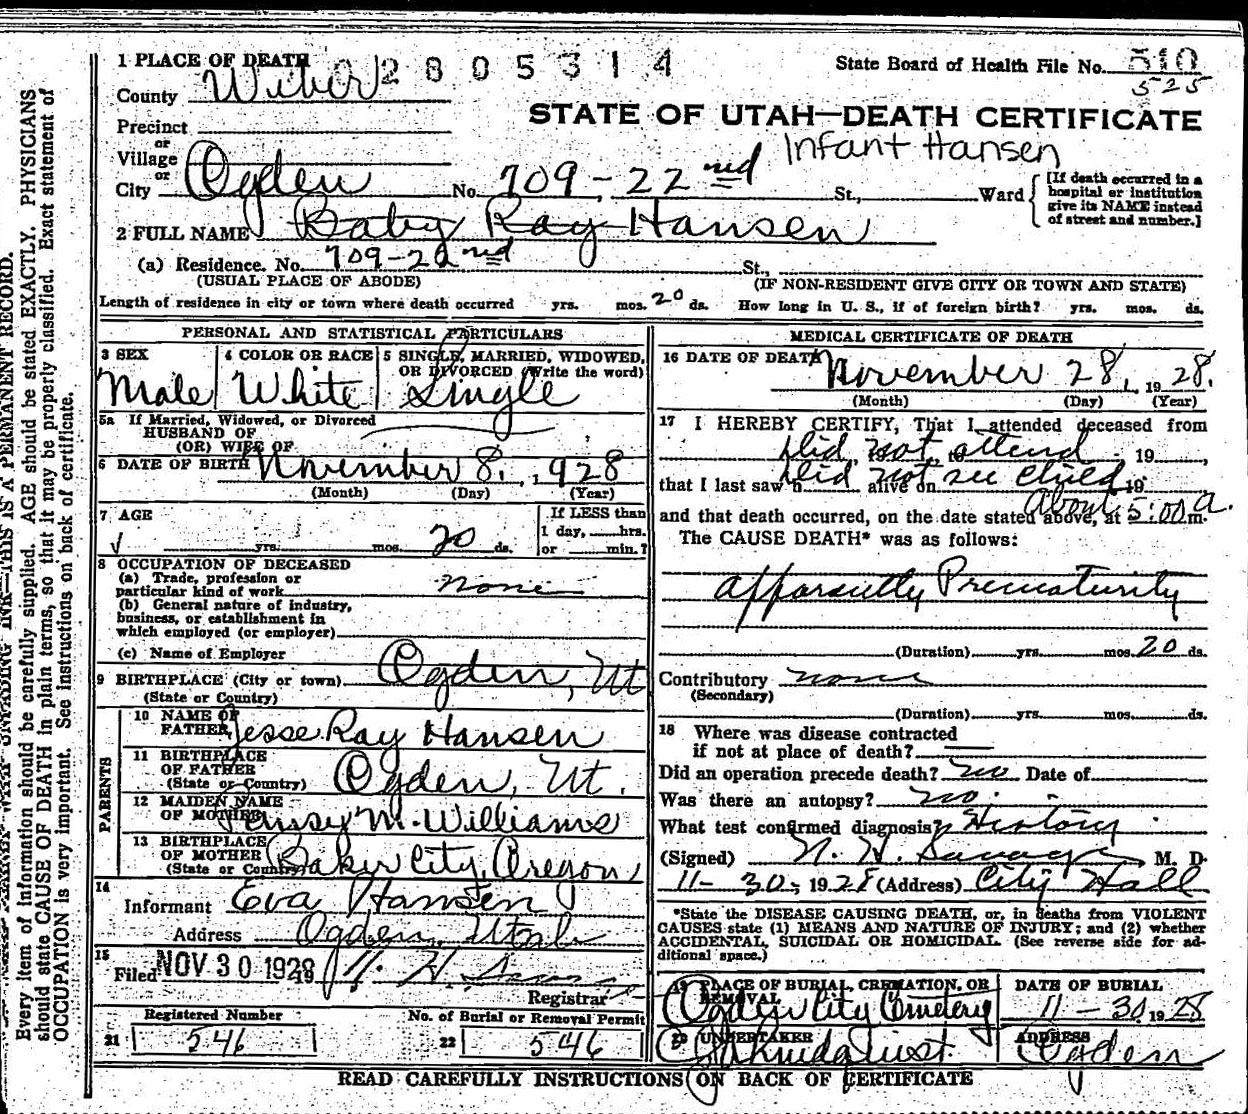 1 PLACE OF DEATH 0 2 8 0 5 3 1 4
State Board of Health File No. 510
525
County Weber
STATE OF UTAH—DEATH CERTIFICATE
Precinct
or
Village
or
Infant Hansen
City Ogden No. 709-22nd St., Ward
[If death occurred in a hospital or institution give its NAME instead of street and number.]
2 FULL NAME Baby Ray Hansen
(a) Residence. No. 709-22nd St.,
(USUAL PLACE OF ABODE) (IF NON-RESIDENT GIVE CITY OR TOWN AND STATE)
Length of residence in city or town where death occurred yrs. mos. 20 ds. How long in U. S., if of foreign birth? yrs. mos. ds.
PERSONAL AND STATISTICAL PARTICULARS
3 SEX 4 COLOR OR RACE 5 SINGLE, MARRIED, WIDOWED,
OR DIVORCED (Write the word)
Male White Single
5a If Married, Widowed, or Divorced
HUSBAND OF
(OR) WIFE OF
6 DATE OF BIRTH November 8, 1928
(Month) (Day) (Year)
7 AGE If LESS than
1 day, hrs.
yrs. mos. 20 ds. or min.?
8 OCCUPATION OF DECEASED
(a) Trade, profession or
particular kind of work none
(b) General nature of industry,
business, or establishment in
which employed (or employer)
(c) Name of Employer
9 BIRTHPLACE (City or town) Ogden, Ut
(State or Country)
PARENTS
10 NAME OF
FATHER Jesse Ray Hansen
11 BIRTHPLACE
OF FATHER Ogden, Ut.
(State or Country)
12 MAIDEN NAME
OF MOTHER M. Williams
13 BIRTHPLACE
OF MOTHER Baker City, Oregon
(State or Country)
14
Informant Eva Hansen
Address Ogden, Utah
15
Filed NOV 30 1928 19
Registrar
Registered Number No. of Burial or Removal Permit
21 546 22 546
MEDICAL CERTIFICATE OF DEATH
16 DATE OF DEATH November 28, 1928.
(Month) (Day) (Year)
17 I HEREBY CERTIFY, That I attended deceased from
Did not attend, 19
that I last saw h Did alive on not see child 19
and that death occurred, on the date stated above, at About 5:00 a. m.
The CAUSE DEATH* was as follows:
Apparently Prematurity
(Duration) yrs. mos. 20 ds.
Contributory none
(Secondary)
(Duration) yrs. mos. ds.
18 Where was disease contracted
if not at place of death?
Did an operation precede death? no Date of
Was there an autopsy? no.
What test confirmed diagnosis? History
(Signed) M. D.
11-30, 1928 (Address) City Hall
*State the DISEASE CAUSING DEATH, or, in deaths from VIOLENT
CAUSES state (1) MEANS AND NATURE OF INJURY; and (2) whether
ACCIDENTAL, SUICIDAL OR HOMICIDAL. (See reverse side for ad-
ditional space.)
19 PLACE OF BURIAL, CREMATION, OR
REMOVAL DATE OF BURIAL
Ogden City Cemetery 11-30 1928
20 UNDERTAKER ADDRESS
Ogden
READ CAREFULLY INSTRUCTIONS ON BACK OF CERTIFICATE
Every item of information should be carefully supplied. AGE should be stated EXACTLY. PHYSICIANS
should state CAUSE OF DEATH in plain terms, so that it may be properly classified. Exact statement of
OCCUPATION is very important. See instructions on back of certificate.